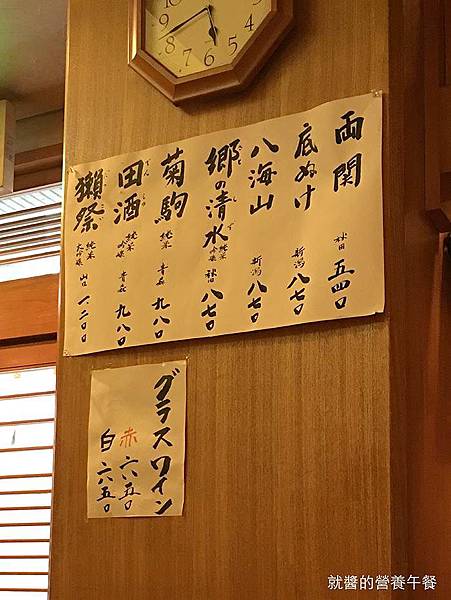 両関 秋田 五四〇
底ぬけ 新潟 八七〇
八海山 新潟 八七〇
郷の清水 純米吟醸 秋田 八七〇
菊駒 純米吟醸 青森 九八〇
田酒 純米吟醸 青森 九八〇
獺祭 純米大吟醸 山口 一、二〇〇
グラスワイン
赤 六五〇
白 六五〇
就醬的營養午餐